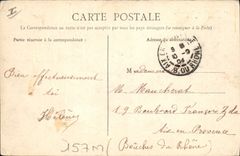 CARTE POSTALE
La Correspondance au recto n'est pas acceptée par tous les pays étrangers (se renseigner à la Poste)
Partie réservée à la correspondance
Bien affectueusement
à toi
Hélène
Madame
M. Maucherat
19 Boulevard François Zola
Aix en Provence
(Bouches du Rhône)
157M